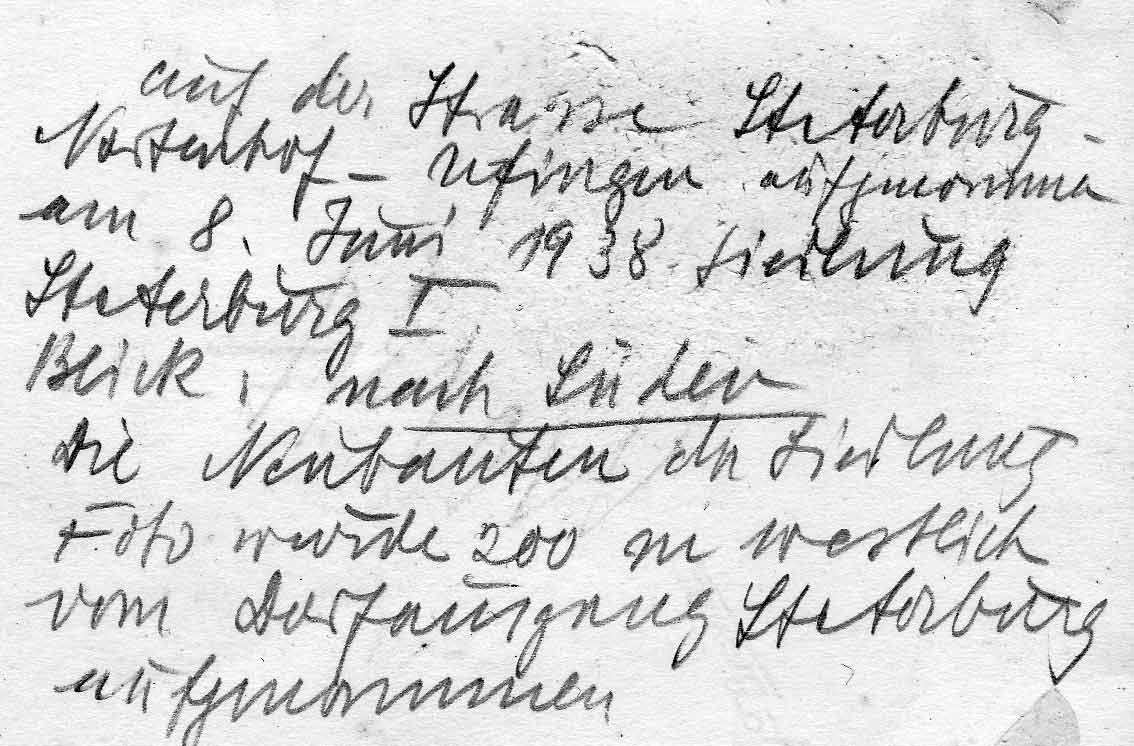 auf der Strasse Steterburg -
Nortenhof - Üfingen aufgenommen
am 8. Juni 1938. Siedlung
Steterburg I.
Blick, nach Süden
Die Neubauten der Siedlung
Foto wurde 200 m westlich
vom Dorfausgang Steterburg
aufgenommen